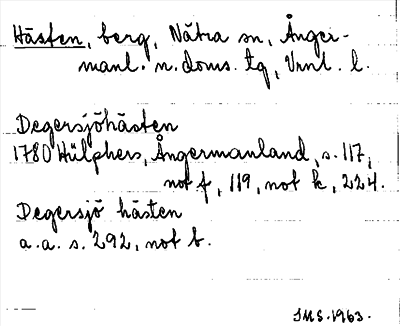 Hästen, berg, Nätra sn, Ånger-
manl. n. doms. tg, Vnnl. l.
Degersjöhästen
1780 Hülphers, Ångermanland, s. 117,
not f, 119, not k, 224.
Degersjö hästen
a.a. s. 292, not b.
IMS. 1963.